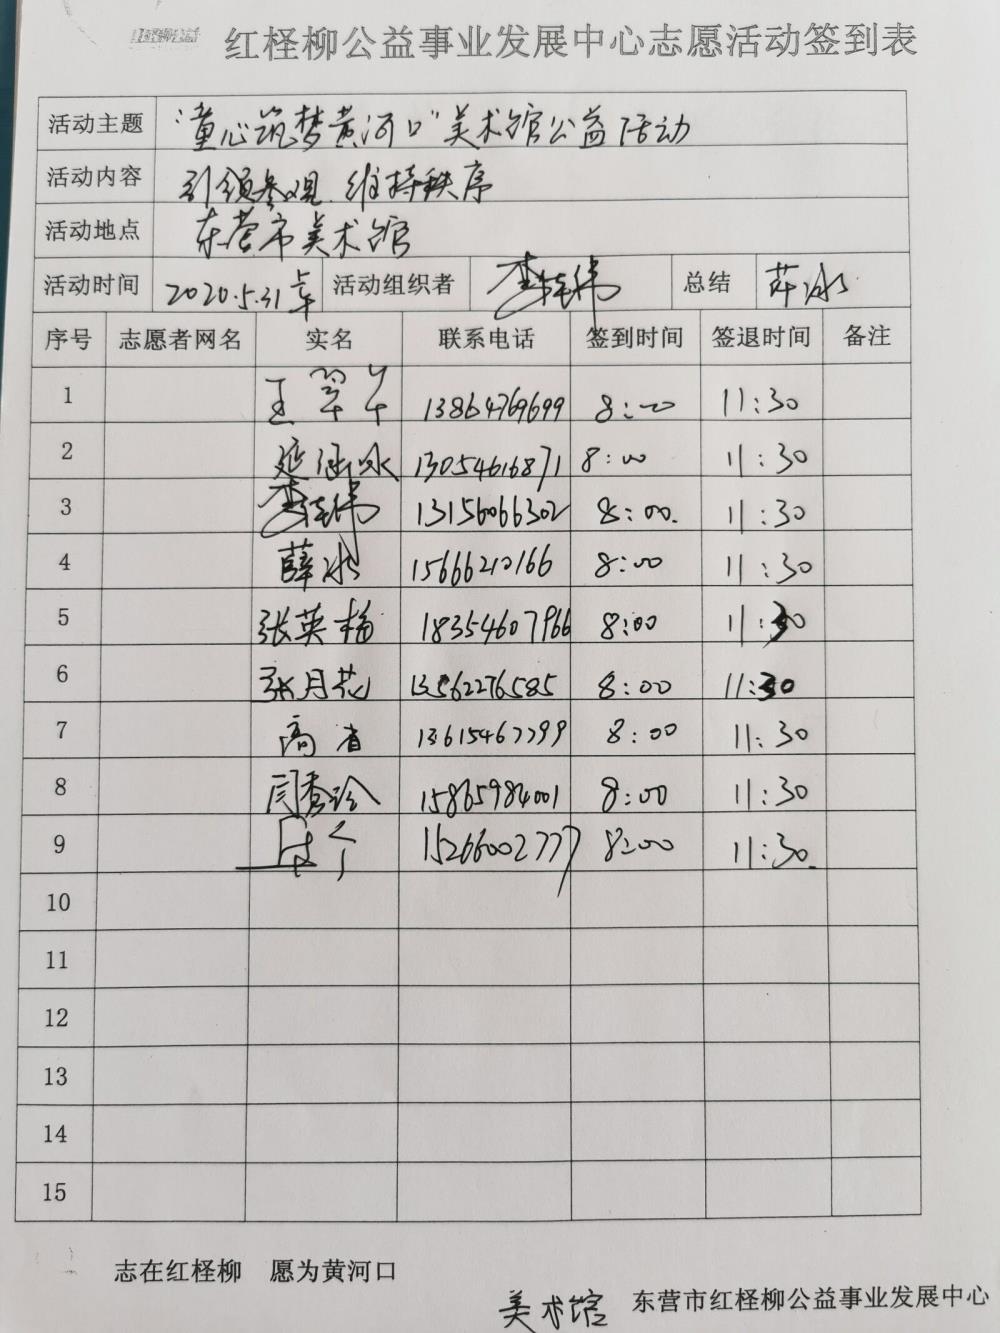 红柽柳公益事业发展中心志愿活动签到表
活动主题 "童心筑梦黄河口"美术馆公益活动
活动内容 引领参观、维持秩序
活动地点 东营市美术馆
活动时间 2020.5.31上午 活动组织者 总结 薛冰
序号 志愿者网名 实名 联系电话 签到时间 签退时间 备注
1 王翠 13864769699 8:00 11:30
2 延 冰 13054616871 8:00 11:30
3 13156066302 8:00. 11:30
4 薛冰 15666210166 8:00 11:30
5 张英梅 18354607966 8:00 11:30
6 张月花 13562276585 8:00 11:30
7 高省 8:00 11:30
8 闫秀玲 15865984001 8:00 11:30
9 15266002777 8:00 11:30.
10
11
12
13
14
15
志在红柽柳 愿为黄河口
美术馆 东营市红柽柳公益事业发展中心